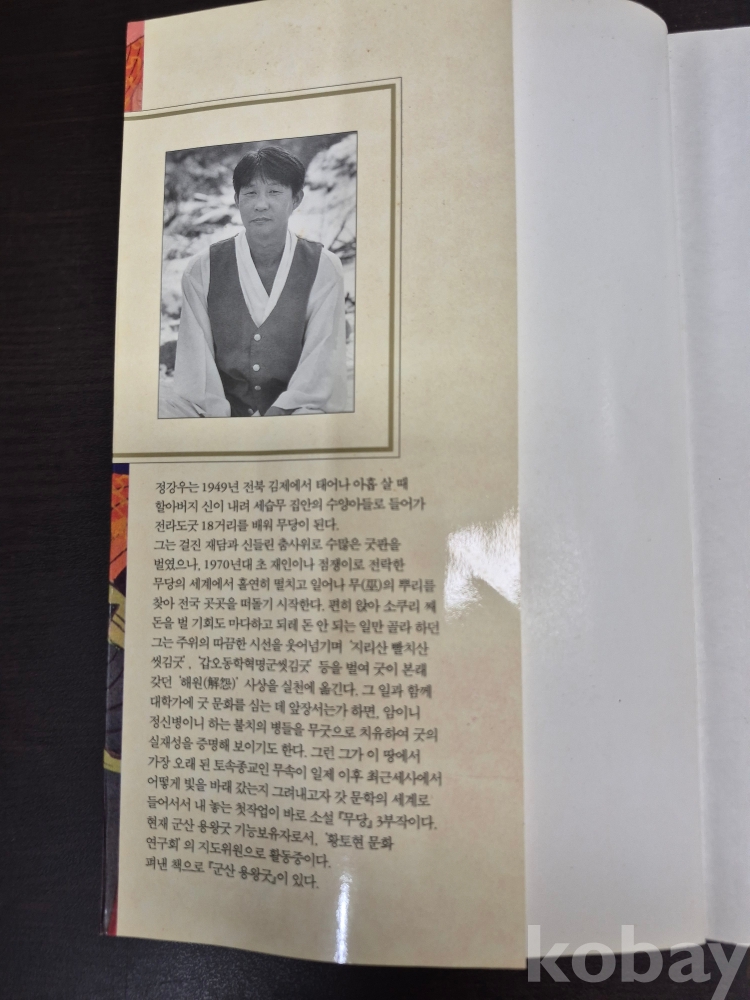 정강우는 1949년 전북 김제에서 태어나 아홉 살 때
할아버지 신이 내려 세습무 집안의 수양아들로 들어가
전라도굿 18거리를 배워 무당이 된다.
그는 걸진 재담과 신들린 춤사위로 수많은 굿판을
벌였으나, 1970년대 초 재인이나 점쟁이로 전락한
무당의 세계에서 홀연히 떨치고 일어나 무(巫)의 뿌리를
찾아 전국 곳곳을 떠돌기 시작한다. 편히 앉아 소쿠리 째
돈을 벌 기회도 마다하고 되레 돈 안 되는 일만 골라 하던
그는 주위의 따끔한 시선을 웃어넘기며 '지리산 빨치산
씻김굿', '갑오동학혁명군씻김굿' 등을 벌여 굿이 본래
갖던 '해원(解怨)' 사상을 실천에 옮긴다. 그 일과 함께
대학가에 굿 문화를 심는 데 앞장서는가 하면, 암이니
정신병이니 하는 불치의 병들을 무굿으로 치유하여 굿의
실재성을 증명해 보이기도 한다. 그런 그가 이 땅에서
가장 오래 된 토속종교인 무속이 일제 이후 최근세사에서
어떻게 빛을 바래 갔는지 그려내고자 갓 문학의 세계로
들어서서 내 놓는 첫작업이 바로 소설 『무당』 3부작이다.
현재 군산 용왕굿 기능보유자로서, '황토현 문화
연구회'의 지도위원으로 활동중이다.
펴낸 책으로 『군산 용왕굿』이 있다.
kobay